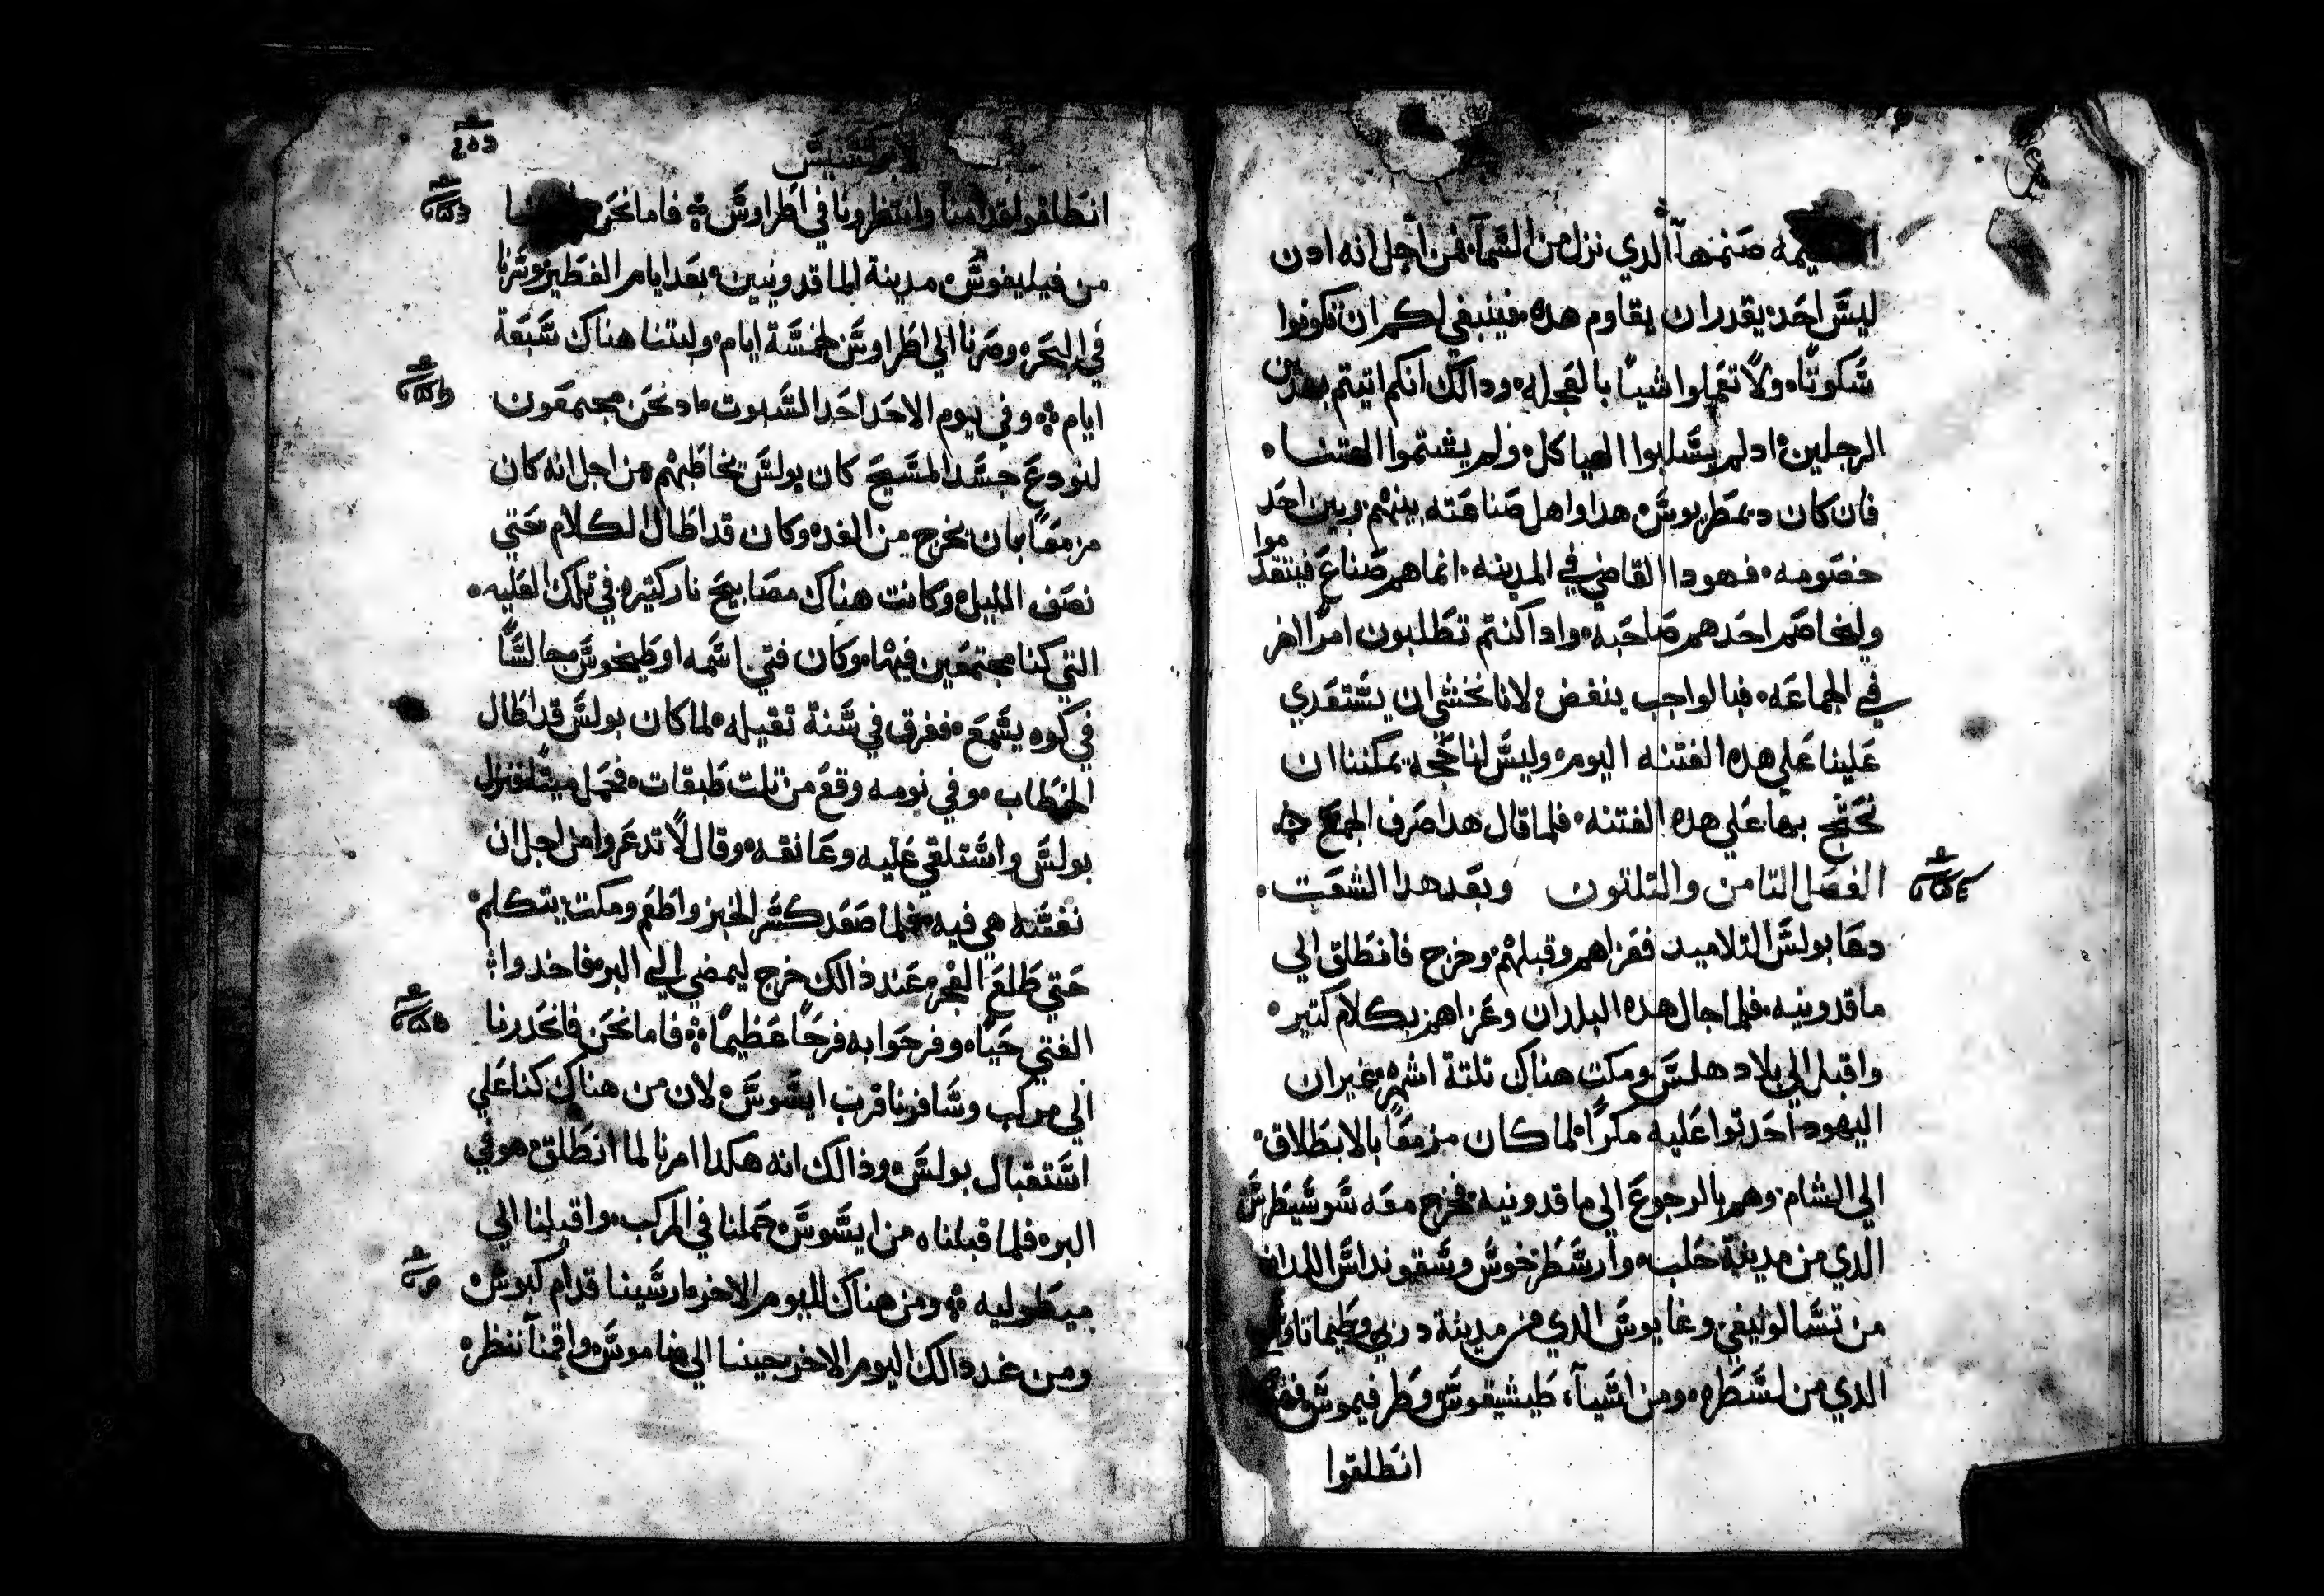 صنمها الدي نزل من السمآ، فمن اجل انه ادن
ليسَ احَد يقدر ان يقاوم هده، فينبغي لكم ان تكونوا
سَكوتًا، ولا تعَملوا شياً بالعَجله، ودالك انكم اتيتم بهدين
الرجلين، ادلم يسَلبوا الهياكل، ولم يشتموا الهتنا،
فان كان ديمَطريوسَ هدا واهل صَناعَته بينهم وبين احَد
خصَومه، فهودا القاضي في المدينه، انما هم صَناعَ فيتقدموا
وليخاصَم احَدهم صَاحَبه، وادا كنتم تطَلبون امرًا اخر
في الجماعَه، فبالواجب ينفض، لانا نخشي ان يسَتعَدي
عَلينا عَلي هده الفتنه اليوم، وليسَ لنا حَجه يمكننا ان
نحَتج بها عَلي هده الفتنه، فلما قال هدا صَرف الجمع
الفصَل التامن والتلتون وبعَد هدا الشعَت،
دعَا بولسَ التلاميد فعَزاهم وقبلهم، وخرج فانطَلق الي
ماقدونيه، فلما جال هده البلدان وعَزاهم بكلام كتير،
واقبل الي بلاد هلسَ ومكت هناك تلتة اشهر، غير ان
اليهود احَدتوا عَليه مكرًا، لما كان مزمعًا بالانطَلاق،
الي الشام، وهم بالرجوعَ الي ماقدونيه، فخرج معَه سَوسَيبَطرسَ
الدي من مدينة حَلب، وارسَطَرخوسَ وسَقونداسَ اللدان
من تسَالونيقي، وغايوسَ الدي من مدينة دربي، وطَيماتاوسَ
الدي من لسَطَره، ومن اسَيآ، طَيشيقوسَ وطَرفيموسَ
انطَلقوا
الابركسيسَ
انطَلقوا قدامنا وانتظرونا في اطَراوسَ؛ فاما نحَن
من فيليفوسَ مدينة الماقدونيين، بعَد ايام الفطَير، وسَرنا
في البحَر، وصَرنا الي اطَراوسَ لخمسَة ايام، ولبتنا هناك سَبعَة
ايام؛ وفي يوم الاحَد احَد السَبوت، اد نحَن مجتمعَون
لنودعَ جسَد المسَيحَ كان بولسَ يخاطَبهم، من اجل انه كان
مزمعًا بان يخرج من الغد، وكان قد اطَال الكلام حَتي
نصَف الليل، وكانت هناك مصَابيحَ نار كتيره في تلك العَليه،
التي كنا مجتمعَين فيها، وكان فتي اسَمه اوطَيخوسَ جالسًا
في كوه يسَمعَ، فغرق في سَنة تقيله، لما كان بولسَ قد اطَال
الخطَاب، وفي نومه وقعَ من تلت طَبقات، فحَمل ميتًا، فنزل
بولسَ واسَتلقي عَليه وعَانقه، وقال لا تدعَروا من اجل ان
نفسَه هي فيه، فلما صَعَد كسَر الخبز واطَعَم ومكت يتكلم،
حَتي طَلعَ الفجر، عَند ذالك خرج ليمضي الي البر، فاخدوا
الفتي حَيًا، وفرحَوا به فرحًا عَظيمًا؛ فاما نحَن فانحَدرنا
الي مركب وسَافرنا قرب ايسَوسَ، لان من هناك كنا عَلي
اسَتقبال بولسَ، وذالك انه هكدا امرنا لما انطَلق هو في
البر، فلما قبلناه من ايسَوسَ، حَملنا في المركب، واقبلنا الي
ميطَوليه؛ ومن هناك لليوم الاخر، ارسَينا قدام كيوسَ،
ومن غد ذالك اليوم الاخر جينا الي ساموسَ، واقمنا